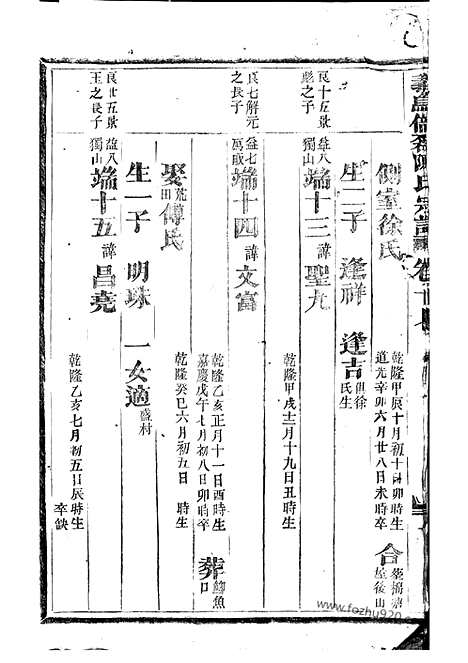 義烏倍磊陳氏宗譜 卷十
側室徐氏 乾隆甲辰十月初十日卯時生 道光辛卯六月廿八日未時卒 合葬
屋後山
生二子 逢祥 逢吉 俱徐氏生
良十五 彪之長子 益八 獨山 端十三 諱聖九 乾隆甲戌十二月十九日丑時生
良七解元之長子 益七 萬 端十四 諱文富 乾隆乙亥正月十一日酉時生 嘉慶戊午七月初八日卯時卒 葬 魚口
娶 田傅氏 乾隆癸巳六月初五日 時生
生一子 明珠 一女適 盛村
良廿五 玉之長子 益八 獨山 端十五 諱昌堯 乾隆乙亥七月初五日辰時生 卒缺
www.fozhu920.com